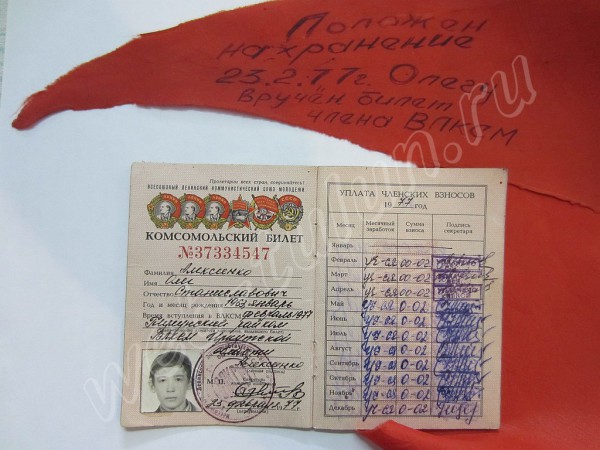 Положен
на хранение
23.2.77г. Олегу
Вручён билет
члена ВЛКСМ
Пролетарии всех стран, соединяйтесь!
ВСЕСОЮЗНЫЙ ЛЕНИНСКИЙ КОММУНИСТИЧЕСКИЙ СОЮЗ МОЛОДЕЖИ
КОМСОМОЛЬСКИЙ БИЛЕТ
№37334547
Фамилия Алексеенко
Имя Олег
Отчество Станиславович
Год и месяц рождения 1963 январь
Время вступления в ВЛКСМ февраль 1977
райком
ВЛКСМ
М. П.
25 февраля 77
УПЛАТА ЧЛЕНСКИХ ВЗНОСОВ
1977 год
Месяц Месячный заработок Сумма взноса Подпись секретаря
Январь
Февраль уч-ся 00-02
Март уч-ся 00-02
Апрель уч-ся 00-02
Май уч-ся 0-02
Июнь уч-ся 0-02
Июль уч-ся 0-02
Август уч-ся 0-02
Сентябрь уч-ся 0-02
Октябрь уч-ся 0-02
Ноябрь уч-ся 0-02
Декабрь уч-ся 0-02